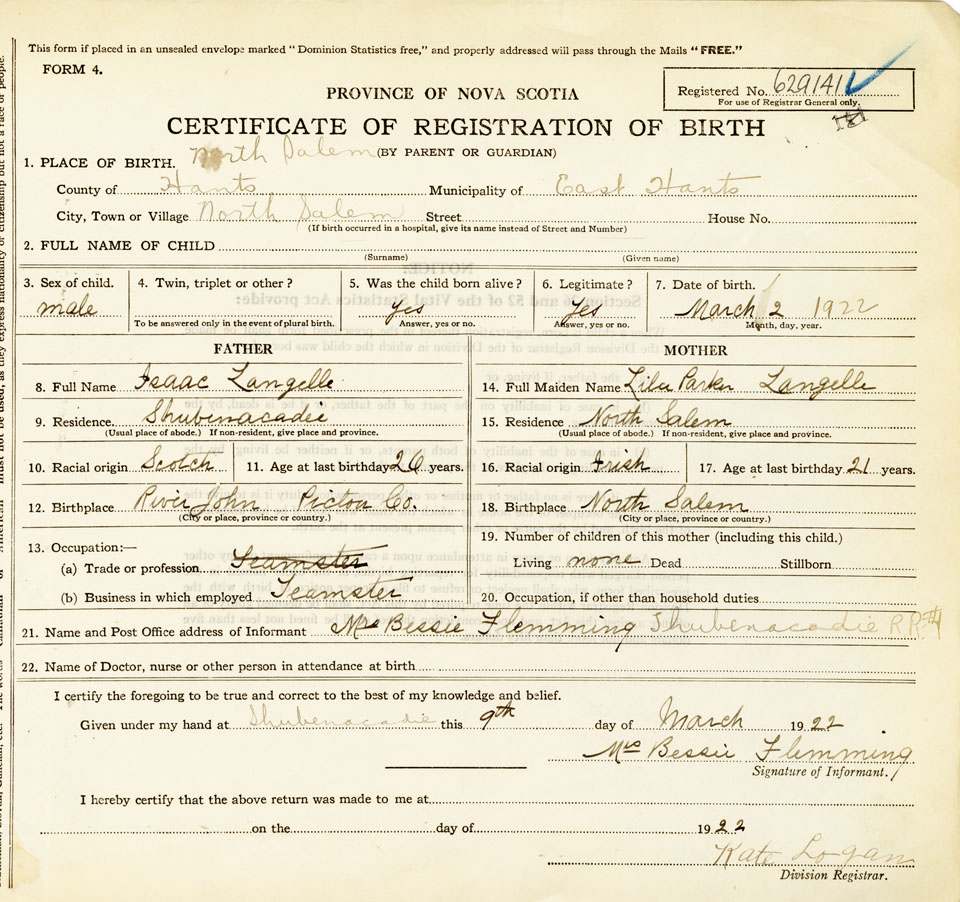 This form if placed in an unsealed envelope marked "Dominion Statistics free," and properly addressed will pass through the Mails "FREE."
FORM 4.
Registered No. 629141
For use of Registrar General only.
PROVINCE OF NOVA SCOTIA
CERTIFICATE OF REGISTRATION OF BIRTH
(BY PARENT OR GUARDIAN)
1. PLACE OF BIRTH. North Salem
County of Hants Municipality of East Hants
City, Town or Village North Salem Street House No.
(If birth occurred in a hospital, give its name instead of Street and Number)
2. FULL NAME OF CHILD
(Surname) (Given name)
3. Sex of child. 4. Twin, triplet or other? 5. Was the child born alive? 6. Legitimate? 7. Date of birth.
male yes yes March 2 1922
To be answered only in the event of plural birth. Answer, yes or no. Answer, yes or no. Month, day, year.
FATHER MOTHER
8. Full Name Isaac Langelle 14. Full Maiden Name Lila Parker Langelle
9. Residence. Shubenacadie 15. Residence North Salem
(Usual place of abode.) If non-resident, give place and province. (Usual place of abode.) If non-resident, give place and province.
10. Racial origin Scotch 11. Age at last birthday 20 years. 16. Racial origin Irish 17. Age at last birthday 21 years.
12. Birthplace River John Pictou Co. 18. Birthplace North Salem
(City or place, province or country.) (City or place, province or country.)
13. Occupation:— 19. Number of children of this mother (including this child.)
(a) Trade or profession Teamster Living none Dead Stillborn
(b) Business in which employed Teamster 20. Occupation, if other than household duties
21. Name and Post Office address of Informant Mrs Bessie Flemming Shubenacadie
22. Name of Doctor, nurse or other person in attendance at birth
I certify the foregoing to be true and correct to the best of my knowledge and belief.
Given under my hand at Shubenacadie this 9th day of March 1922
Mrs Bessie Flemming
Signature of Informant.
I hereby certify that the above return was made to me at
on the day of 1922
Kate Logan
Division Registrar.